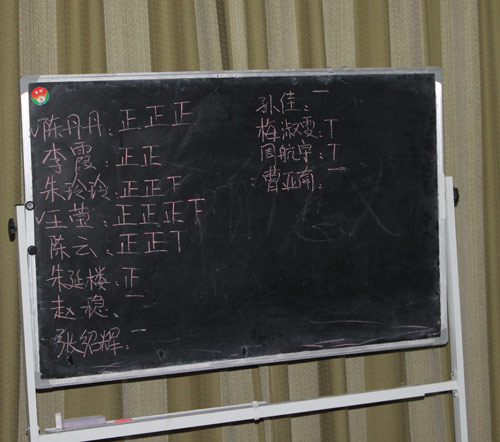 陈丹丹：正正正
李霞：正正
朱玲玲：正正下
王莹：正正正下
陈云：正正丅
朱延楼：正
赵稳、一
张绍辉：一
孙佳：一
梅淑雯：丅
周航宇：丅
曹亚南：一